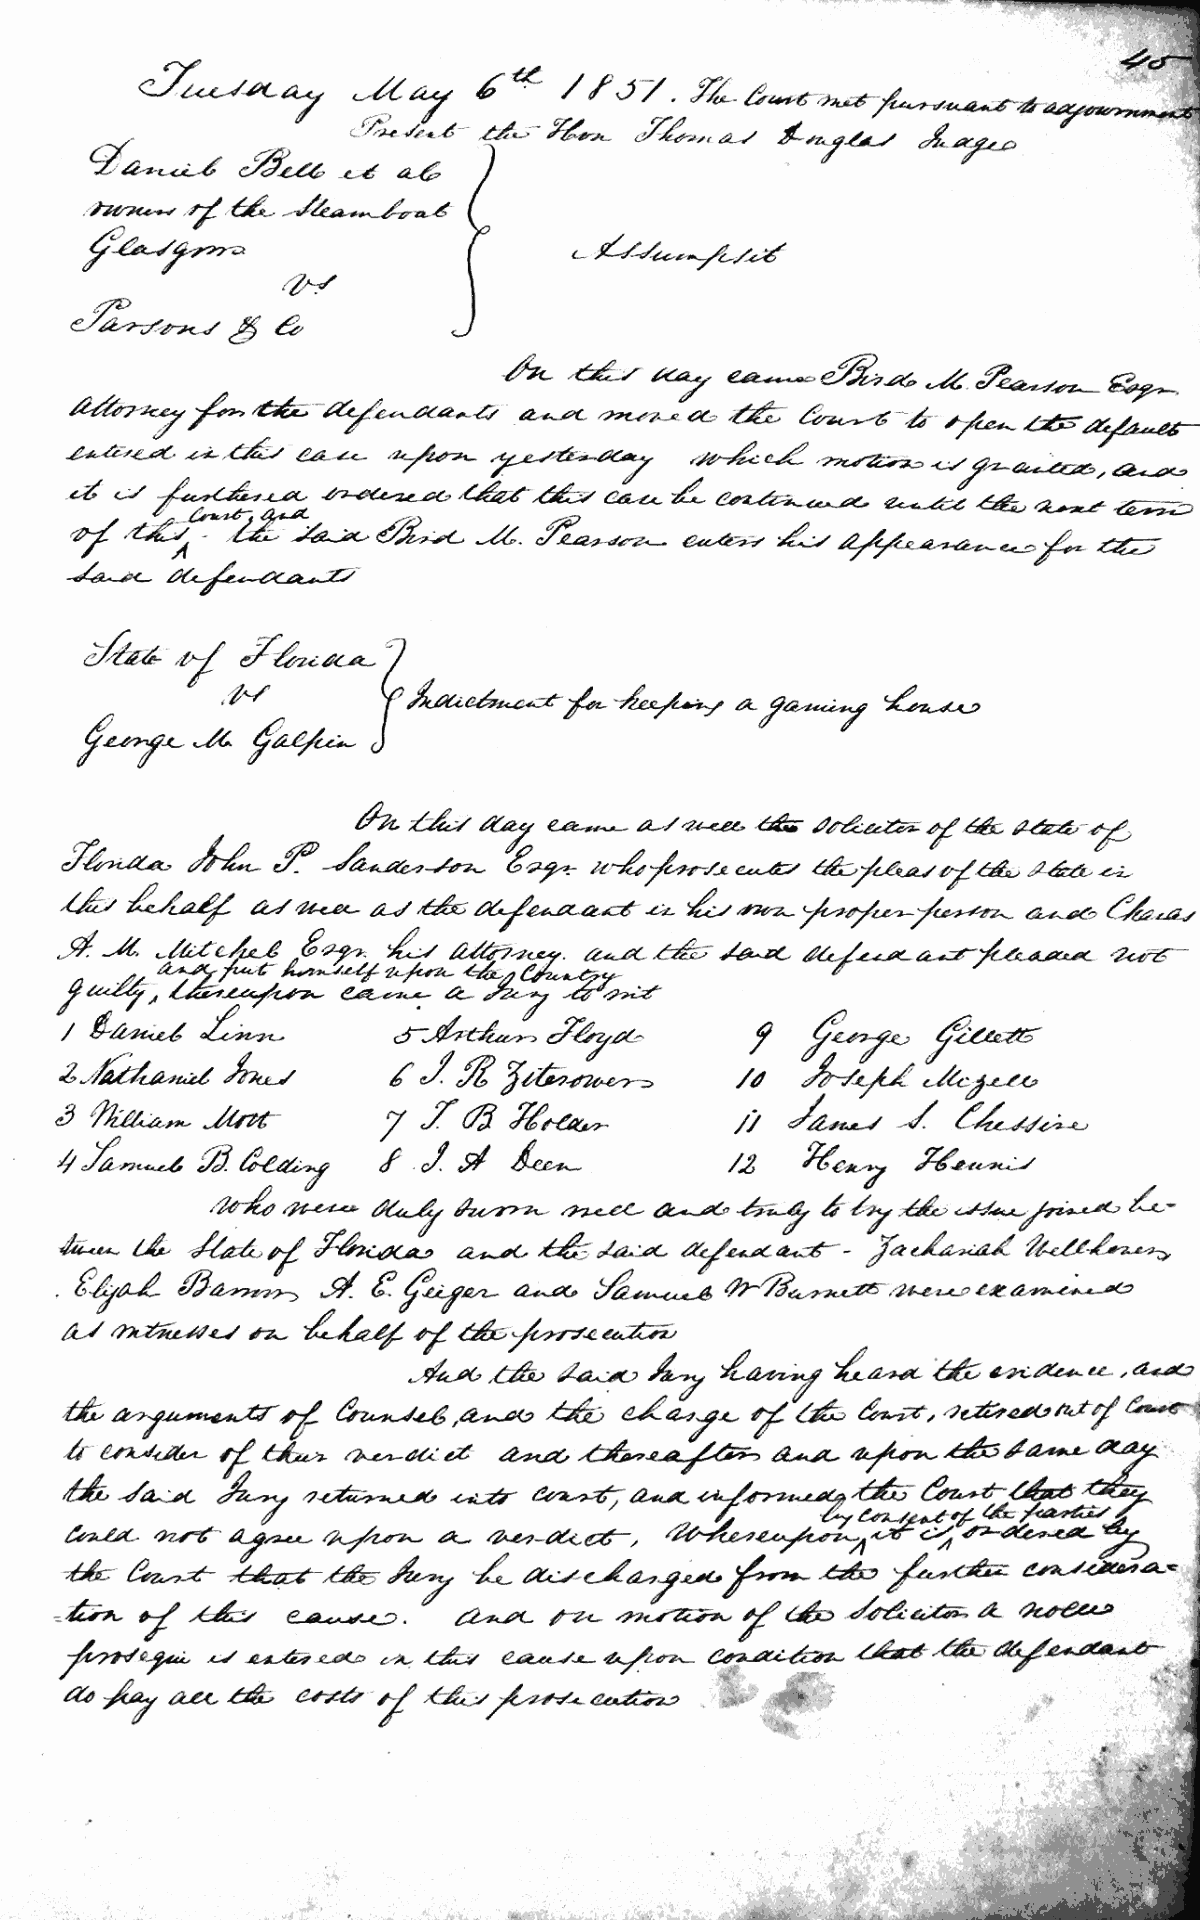 45
Tuesday May 6th 1851. The Court met pursuant to adjournment
Present the Hon Thomas Douglas Judge
Daniel Bell et als
owners of the Steamboat
Glasgow
vs
Parsons & Co
Assumpsit
On this day came Bird M. Pearson Esqr
Attorney for the defendants and moved the Court to open the default
entered in this case upon yesterday which motion is granted, and
it is furthered ordered that this case be continued until the next term
Court, and
of this ^ the said Bird M. Pearson enters his appearance for the
said defendants
State of Florida
vs
George M Galpin
Indictment for keeping a gaming house
On this day came as well the solicitor of the State of
Florida John P. Sanderson Esqr. who prosecutes the pleas of the State in
this behalf as well as the defendant in his own proper person and
A. M. Mitchel Esqr. his attorney. and the said defendant pleaded not
and put himself upon the Country
guilty, thereupon came a Jury to wit
1 Daniel Linn 5 Arthur Floyd 9 George Gillett
2 Nathaniel Jones 6 J. R Zitrower 10 Joseph Mizell
3 William Mott 7 T. B Holder 11 James S. Chessire
4 Samuel B. Colding 8 J. A Deen 12 Henry Hennis
who were duly sworn well and truly to try the issue joined be-
tween the State of Florida and the said defendant - Zachariah
Elijah Barrow A. E. Geiger and Samuel W Burnett were examined
as witnesses on behalf of the prosecution
And the said Jury having heard the evidence, and
the arguments of Counsel, and the charge of the Court, retired out of Court
to consider of their verdict and thereafter and upon the same day
the said Jury returned into court, and informed the Court that they
by consent of the parties
could not agree upon a verdict, Whereupon ^ it is ^ ordered by
the Court that the Jury be discharged from the further considera=
=tion of this cause. And on motion of the Solicitor a nolle
prosequi is entered in this cause upon condition that the defendant
do pay all the costs of this prosecution